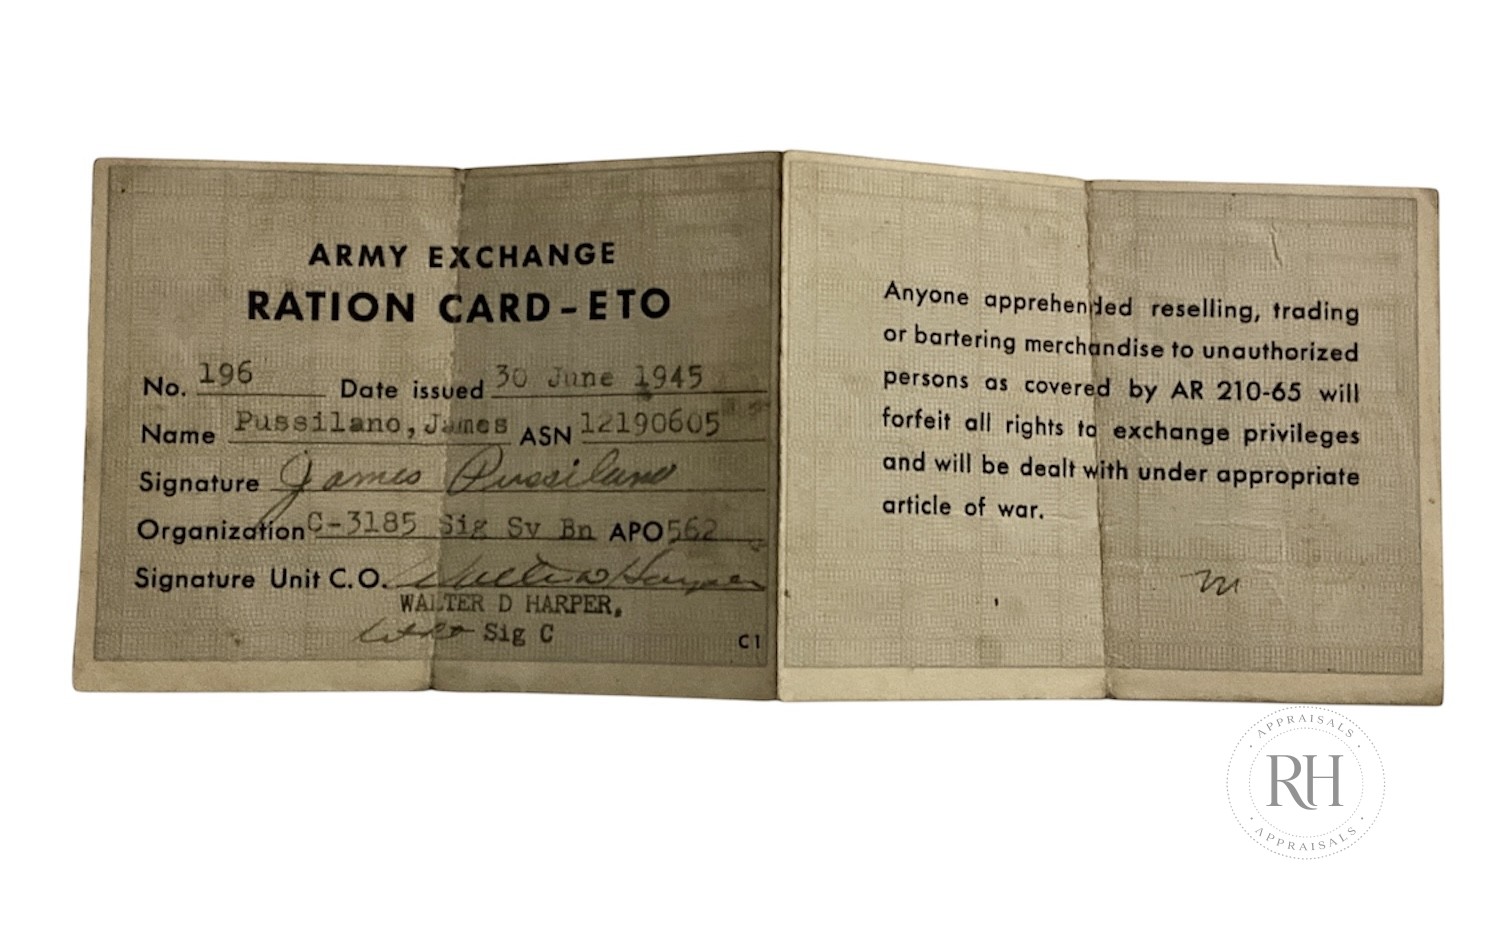 ARMY EXCHANGE
RATION CARD-ETO
No. 196 Date issued 30 June 1945
Name Pussilano, James ASN 12190605
Signature James Pussilano
Organization C-3185 Sig Sv Bn APO 562
Signature Unit C.O. Walter D Harper
WALTER D HARPER,
Sig C
C1
Anyone apprehended reselling, trading
or bartering merchandise to unauthorized
persons as covered by AR 210-65 will
forfeit all rights to exchange privileges
and will be dealt with under appropriate
article of war.
APPRAISALS
RH
APPRAISALS